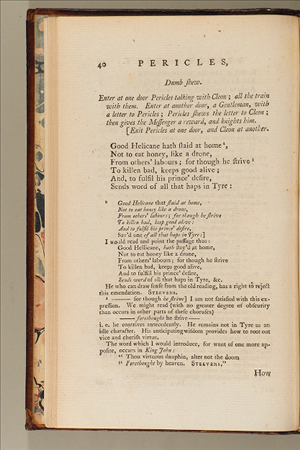 40 PERICLES,
Dumb shew.
Enter at one door Pericles talking with Cleon; all the train
with them. Enter at another door, a Gentleman, with
a letter to Pericles; Pericles shews the letter to Cleon;
then gives the Messenger a reward, and knights him.
[Exit Pericles at one door, and Cleon at another.
Good Helicane hath staid at home ⁴,
Not to eat honey, like a drone,
From others' labours; for though he strive ⁵
To killen bad, keeps good alive;
And, to fulfil his prince' desire,
Sends word of all that haps in Tyre:
⁴ Good Helicane that staid at home,
Not to eat honey like a drone,
From others' labours; for though he strive
To killen bad, keep good alive:
And to fulfil his prince' desire,
Sav'd one of all that haps in Tyre:]
I would read and point the passage thus:
Good Helicane, hath stay'd at home,
Not to eat honey like a drone,
From others' labours; for though he strive
To killen bad, keeps good alive,
And to fulfil his prince' desire,
Sends word of all that haps in Tyre, &c.
He who can draw sense from the old reading, has a right to reject
this emendation. STEEVENS.
⁵ —— for though he strive] I am not satisfied with this ex-
pression. We might read (with no greater degree of obscurity
than occurs in other parts of these choruses)
—— forethought he strive ——
i. e. he contrives remotely. He remains not in Tyre as an
idle character. His anticipating wisdom provides how to root out
vice and cherish virtue.
The word which I would introduce, for want of one more ap-
posite, occurs in King John:
" Thou virtuous dauphin, alter not the doom
" Forethought by heaven. STEEVENS."
How